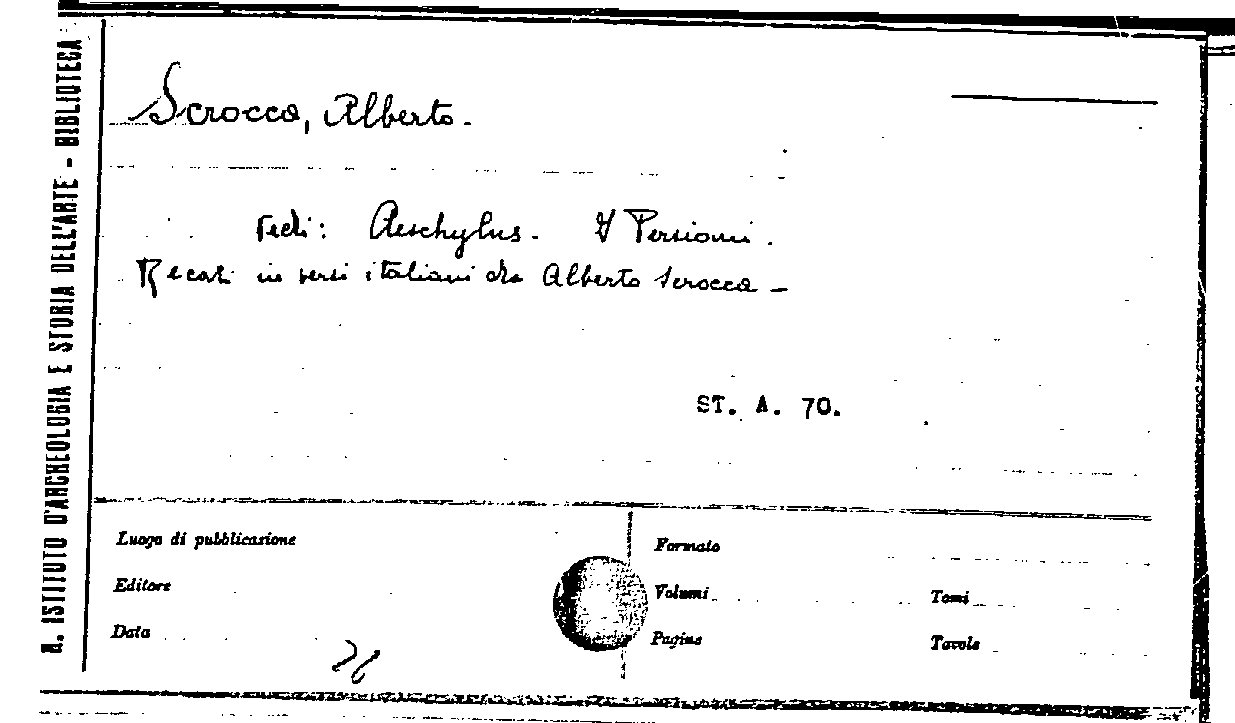 R. ISTITUTO D'ARCHEOLOGIA E STORIA DELL'ARTE - BIBLIOTECA
Scrocca, Alberto.
Vedi: Aeschylus. I Persiani.
Recati in versi italiani da Alberto Scrocca -
ST. A. 70.
Luogo di pubblicazione
Editore
Data
Formato
Volumi
Tomi
Pagine
Tavole